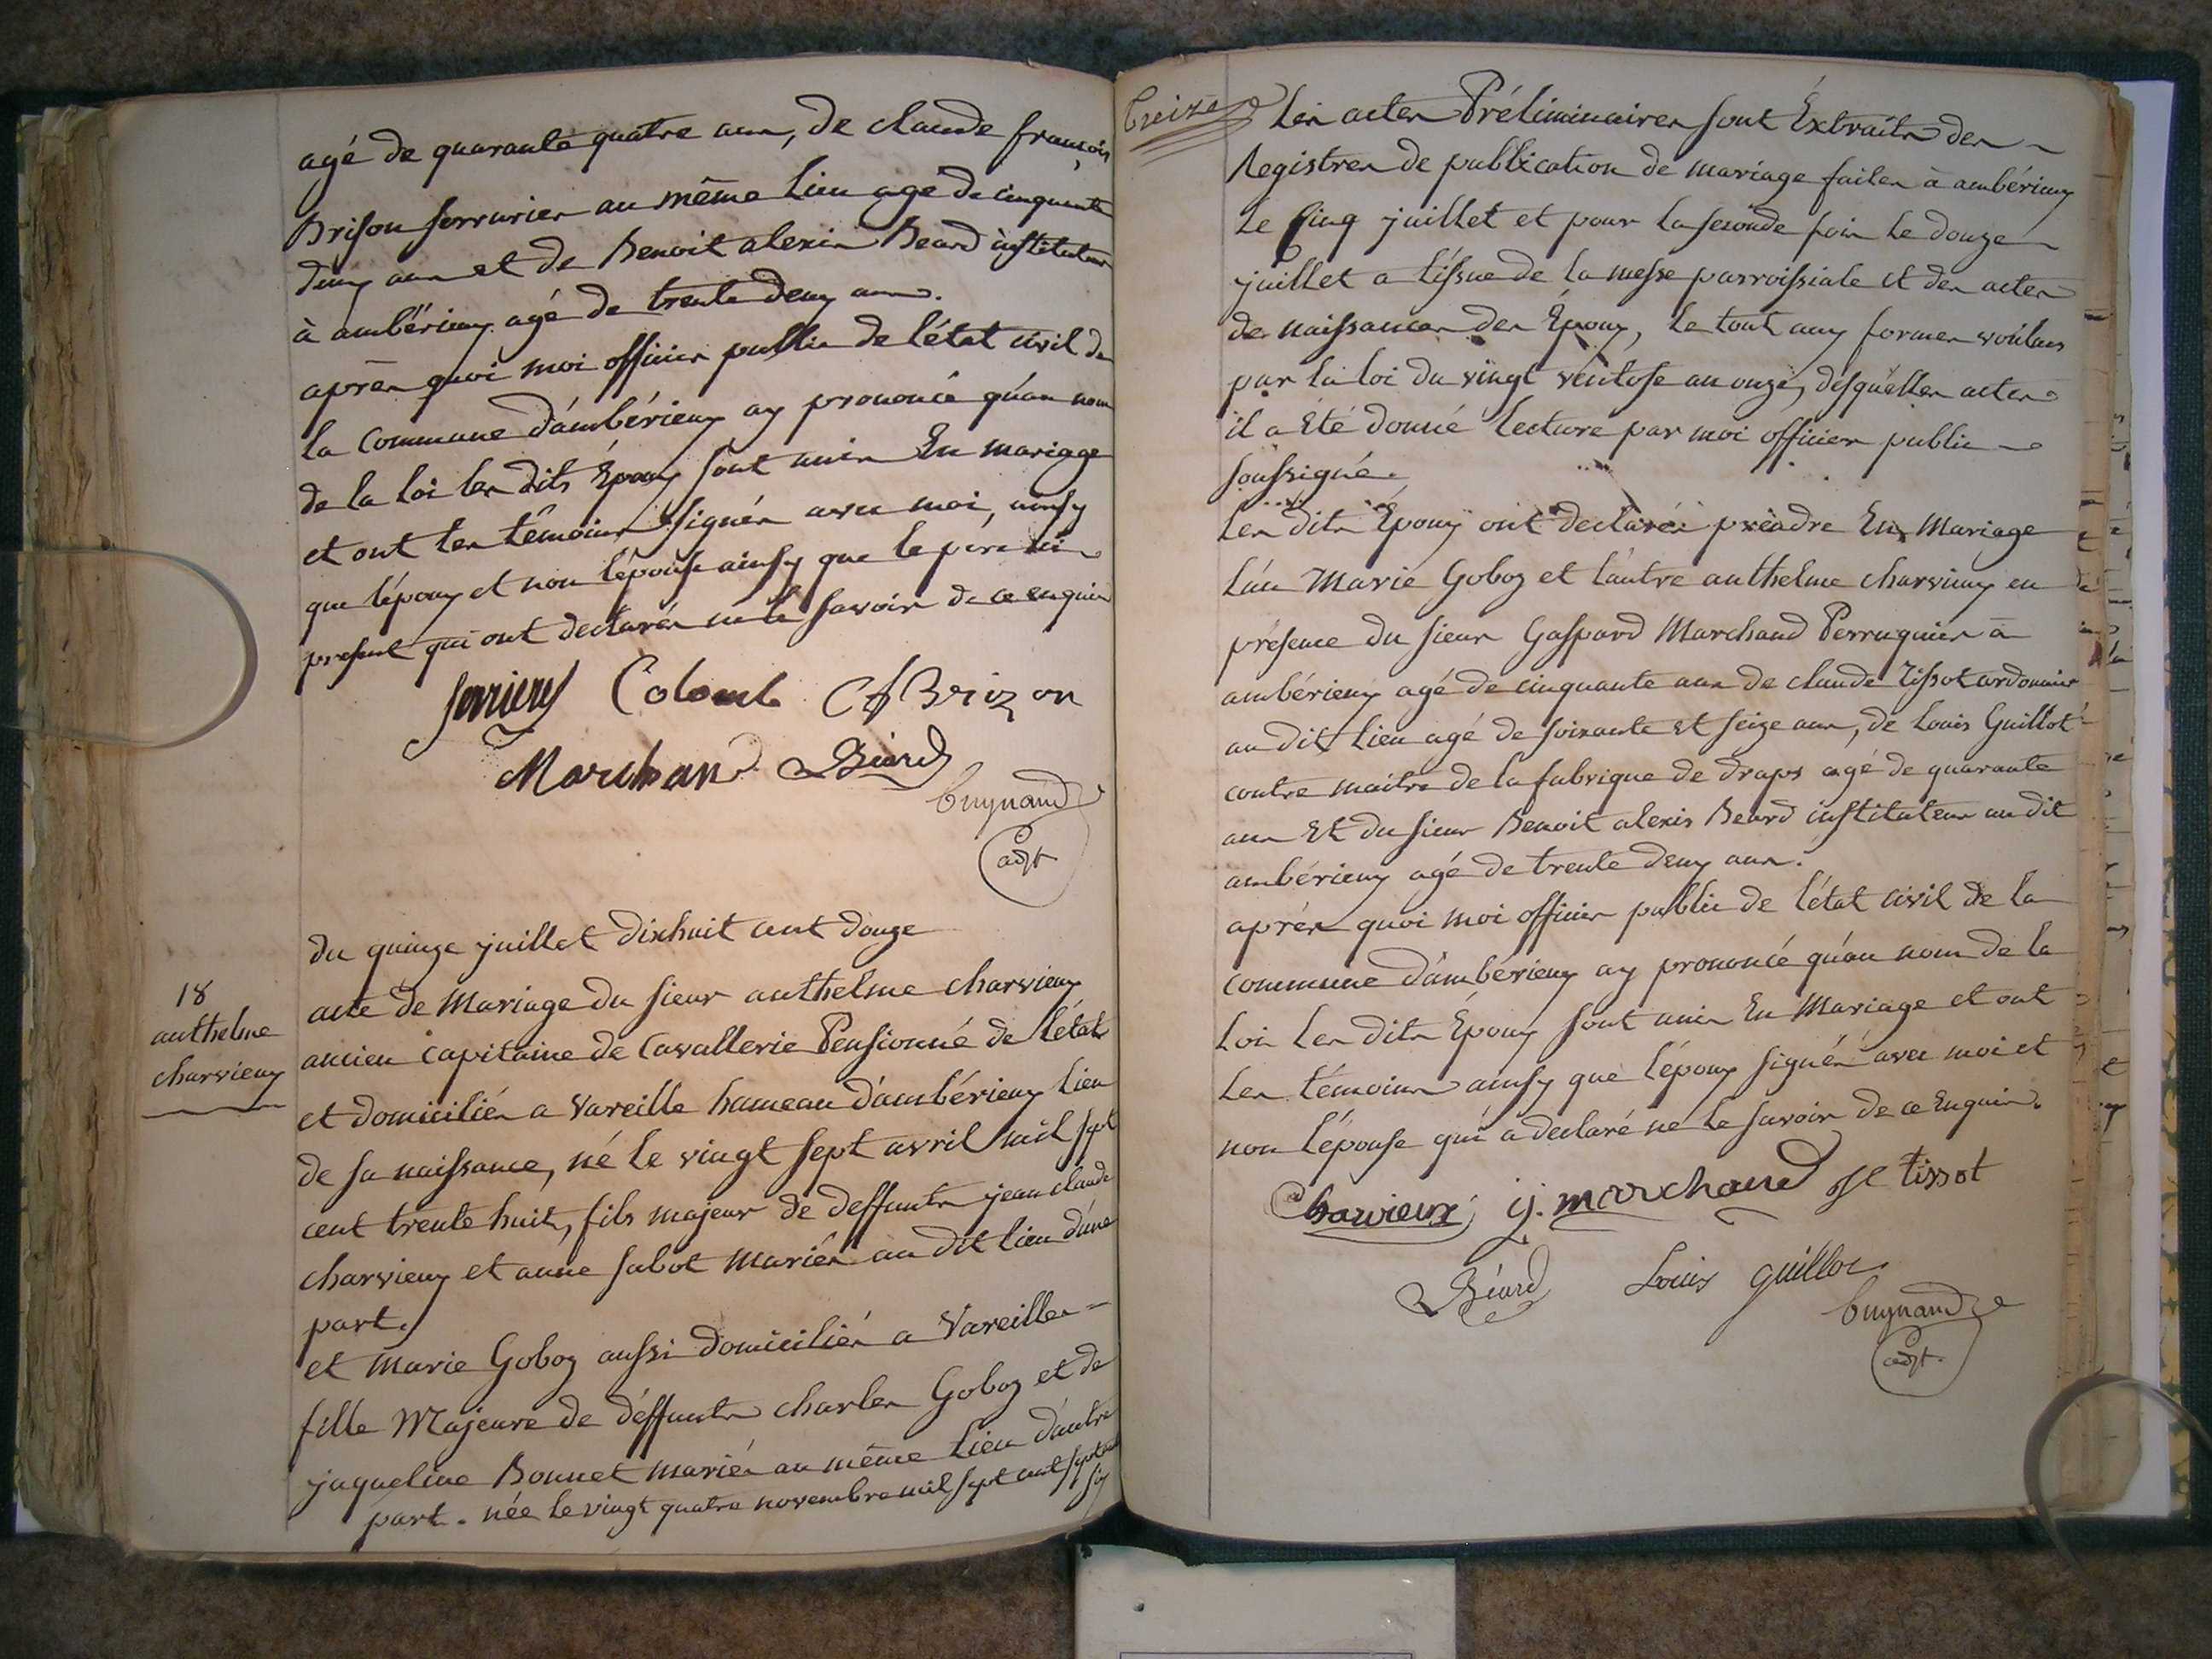 agé de quarante quatre ans, de claude françois
Brison serrurier au même lieu agé de cinquante
deux ans et de Benoit alexis Beard instituteur
à ambérieux agé de trente deux ans.
après quoi moi officier public de l'état civil de
la commune d'ambérieux ay prononcé qu'au nom
de la loi les dits Époux sont unis En mariage
et ont les témoins signés avec moi, ainsy
que l'époux et non l'épouse ainsy que le pere ici
present qui ont declarés ne le savoir de ce enquis
serrieres Colomb Cf Brizon
Marchand Béard
Cuynaud
adjt
18
anthelme
charvieux
du quinze juillet dixhuit cent douze
acte de Mariage du sieur anthelme charvieux
ancien capitaine de Cavallerie Pensionné de l'état
et domiciliés a Vareille hameau d'ambérieux lieu
de sa naissance, né le vingt sept avril mil sept
cent trente huit, fils majeur de deffunts jean claude
charvieux et anne sabot mariés au dit lieu d'une
part.
et Marie Goboz aussi domiciliés a Vareilles =
fille Majeure de déffunts charles Goboz et de
jaqueline Bonnet mariés au même lieu d'autre
part. née le vingt quatre novembre mil sept cent septante
six
treize
Les actes Préliminaires sont Extraits des
Registres de publication de mariage faites à ambérieux
le cinq juillet et pour la seconde fois le douze
juillet a l'issue de la messe parroissiale et des actes
de naissances des Époux, le tout aux formes voulues
par la loi du vingt ventose an onze, desquelles actes
il a Été donné lecture par moi officier public
soussigné.
Les dits Époux ont declarés prendre En Mariage
l'un Marie Goboz et l'autre anthelme charvieux en
présence du sieur Gaspard Marchand Perruquier à
ambérieux agé de cinquante ans de claude Tissot cordonnier
au dit lieu agé de soixante et seize ans, de Louis Guillot
contre maitre de la fabrique de draps agé de quarante
ans Et du sieur Benoit alexis Beard instituteur au dit
ambérieux agé de trente deux ans.
après quoi moi officier public de l'état civil de la
commune d'ambérieux ay prononcé qu'au nom de la
Loi Les dits Époux sont unis En Mariage et ont
Les témoins ainsy que l'époux signés avec moi et
non l'épouse qui a declaré ne le savoir de ce Enquis.
Charvieux g. marchand tissot
Béard Louis guillot
Cuynaud
adjt.